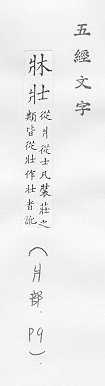 五經文字
牀壯從爿從士凡裝莊之
類皆從壯作壮者訛
(爿部. P9).